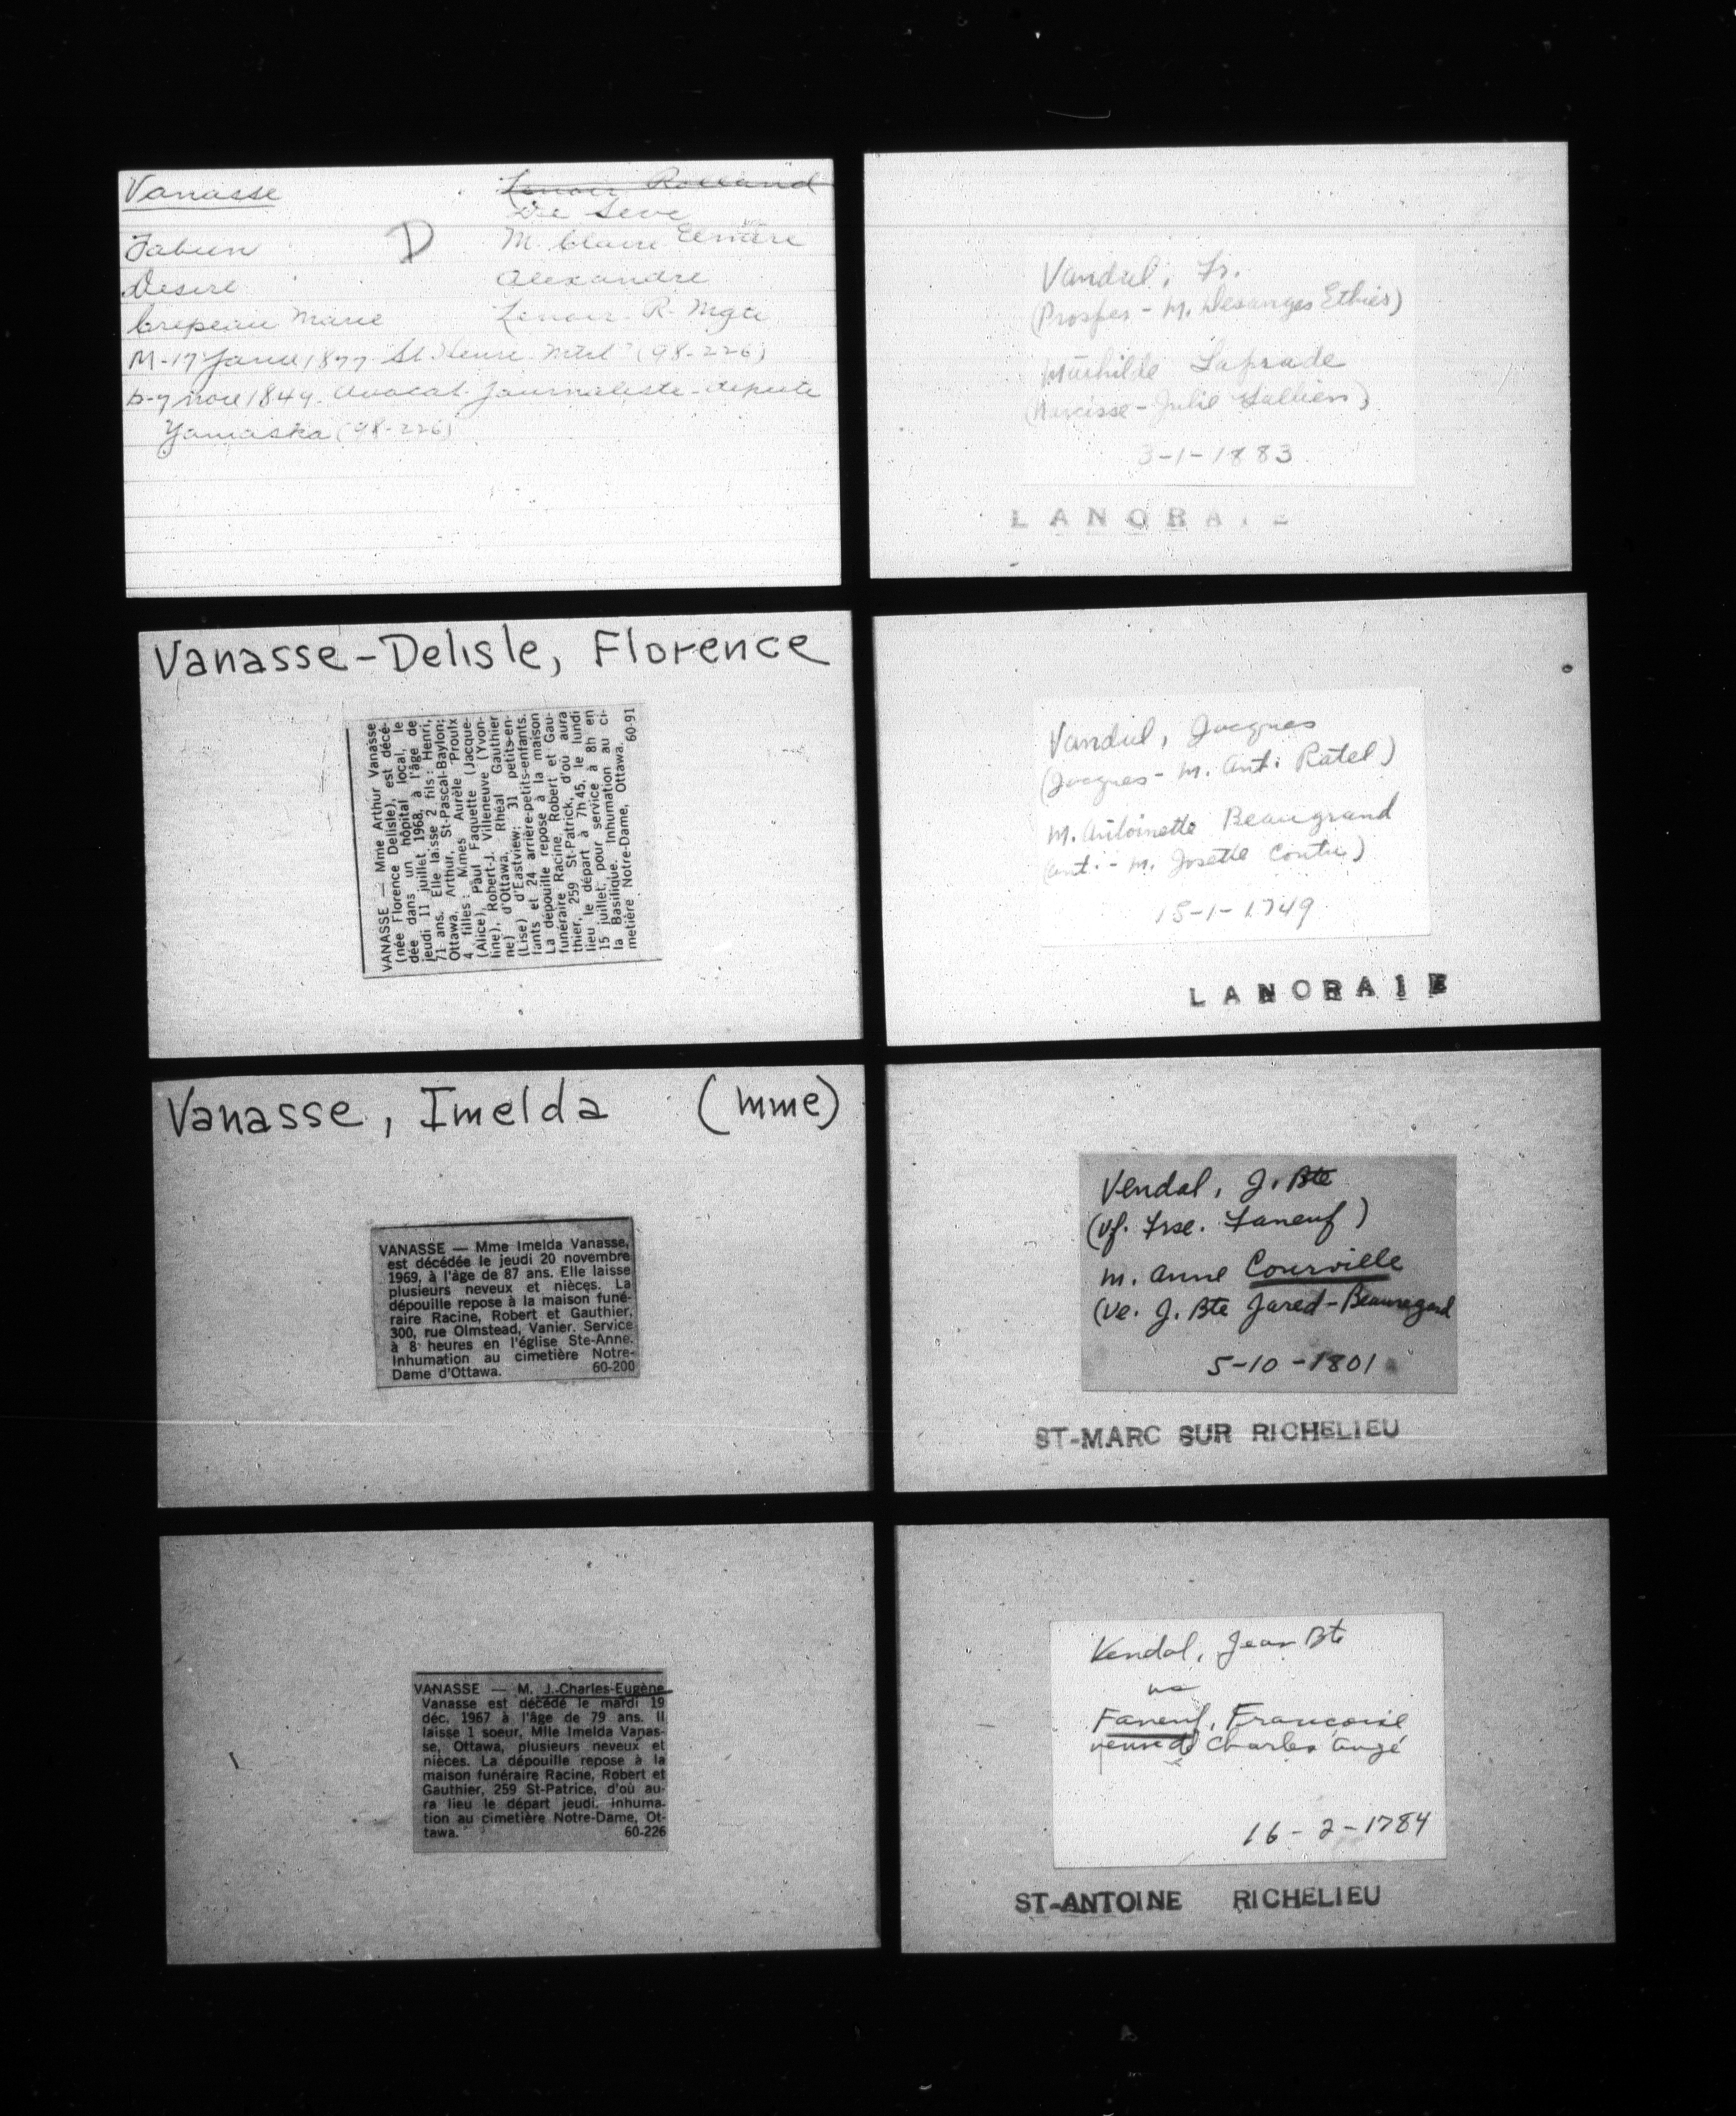 Vanasse
Lenoir Rolland
De Seve
Fabien
D
M. Claire Elmire
Desire
Alexandre
Crepeau Marie
Lenoir - R. Mgte
M-17 Janv 1877 St Henri Mtrl (98-226)
b-9 nove 1849. avocat. journaliste - depute
Yamaska (98-226)
Vanasse-Delisle, Florence
VANASSE — Mme Arthur Vanasse
(née Florence Delisle), est décé-
dée dans un hôpital local, le
jeudi 11 juillet 1968, à l'âge de
71 ans. Elle laisse 2 fils: Henri,
Ottawa, Arthur, St-Pascal-Baylon;
4 filles: Mmes Aurèle Proulx
(Alice), Paul Faquette (Jacque-
line), Robert-J. Villeneuve (Yvon-
ne) d'Ottawa, Rhéal Gauthier
(Lise) d'Eastview; 31 petits-en-
fants et 24 arrière-petits-enfants.
La dépouille repose à la maison
funéraire Racine, Robert et Gau-
thier, 259 St-Patrick, d'où aura
lieu le départ à 7h 45, le lundi
15 juillet, pour service à 8h en
la Basilique. Inhumation au ci-
metière Notre-Dame, Ottawa.
60-91
Vanasse, Imelda (mme)
VANASSE — Mme Imelda Vanasse,
est décédée le jeudi 20 novembre
1969, à l'âge de 87 ans. Elle laisse
plusieurs neveux et nièces. La
dépouille repose à la maison funé-
raire Racine, Robert et Gauthier,
300, rue Olmstead, Vanier. Service
à 8 heures en l'église Ste-Anne.
Inhumation au cimetière Notre-
Dame d'Ottawa. 60-200
VANASSE — M. J.-Charles-Eugène
Vanasse est décédé le mardi 19
déc. 1967 à l'âge de 79 ans. Il
laisse 1 soeur, Mlle Imelda Vanas-
se, Ottawa, plusieurs neveux et
nièces. La dépouille repose à la
maison funéraire Racine, Robert et
Gauthier, 259 St-Patrice, d'où au-
ra lieu le départ jeudi. Inhuma-
tion au cimetière Notre-Dame, Ot-
tawa. 60-226
Vandal, Fr.
(Prosper - M. Desanges Ethier)
Mathilde Laprade
(Narcisse - Julie Vallière)
3-1-1883
LANORAIE
Vandal, Jacques
(Jacques - M. Ant. Ratel)
M. Antoinette Beaugrand
(Ant. - M. Josette Coutu)
15-1-1749
LANORAIE
Vendal, J. Bte
(vf. Frse. Faneuf)
m. Anne Courville
(ve. J. Bte Jared-Beauregard
5-10-1801
ST-MARC SUR RICHELIEU
Vendal, Jean Bte
Faneuf, Francoise
veuve de Charles Augé
16-2-1784
ST-ANTOINE RICHELIEU